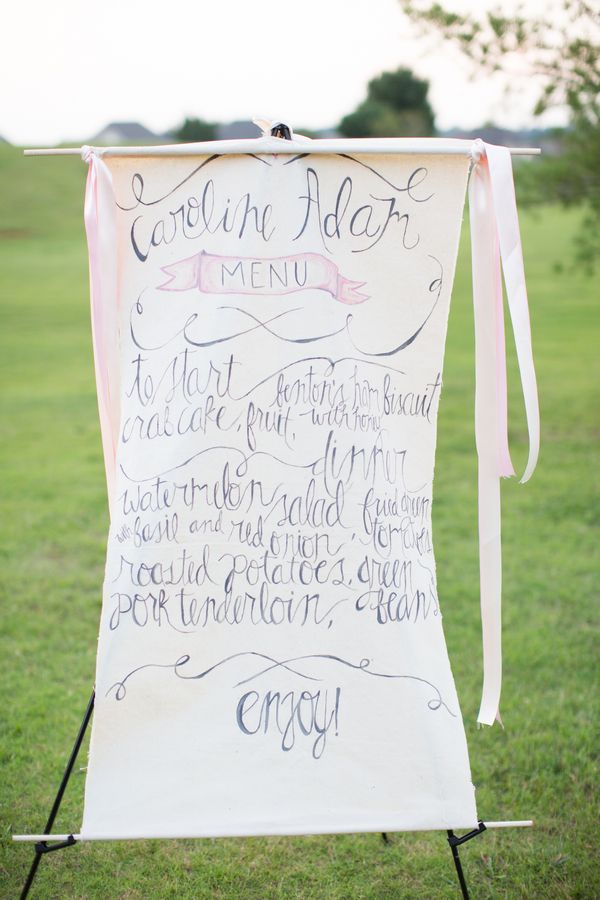 Caroline Adam
MENU
to start
benton's ham biscuit
crab cake, fruit, with honey
dinner
watermelon salad fried green
with basil and red onion, tomatoes
roasted potatoes, green
pork tenderloin, beans
enjoy!